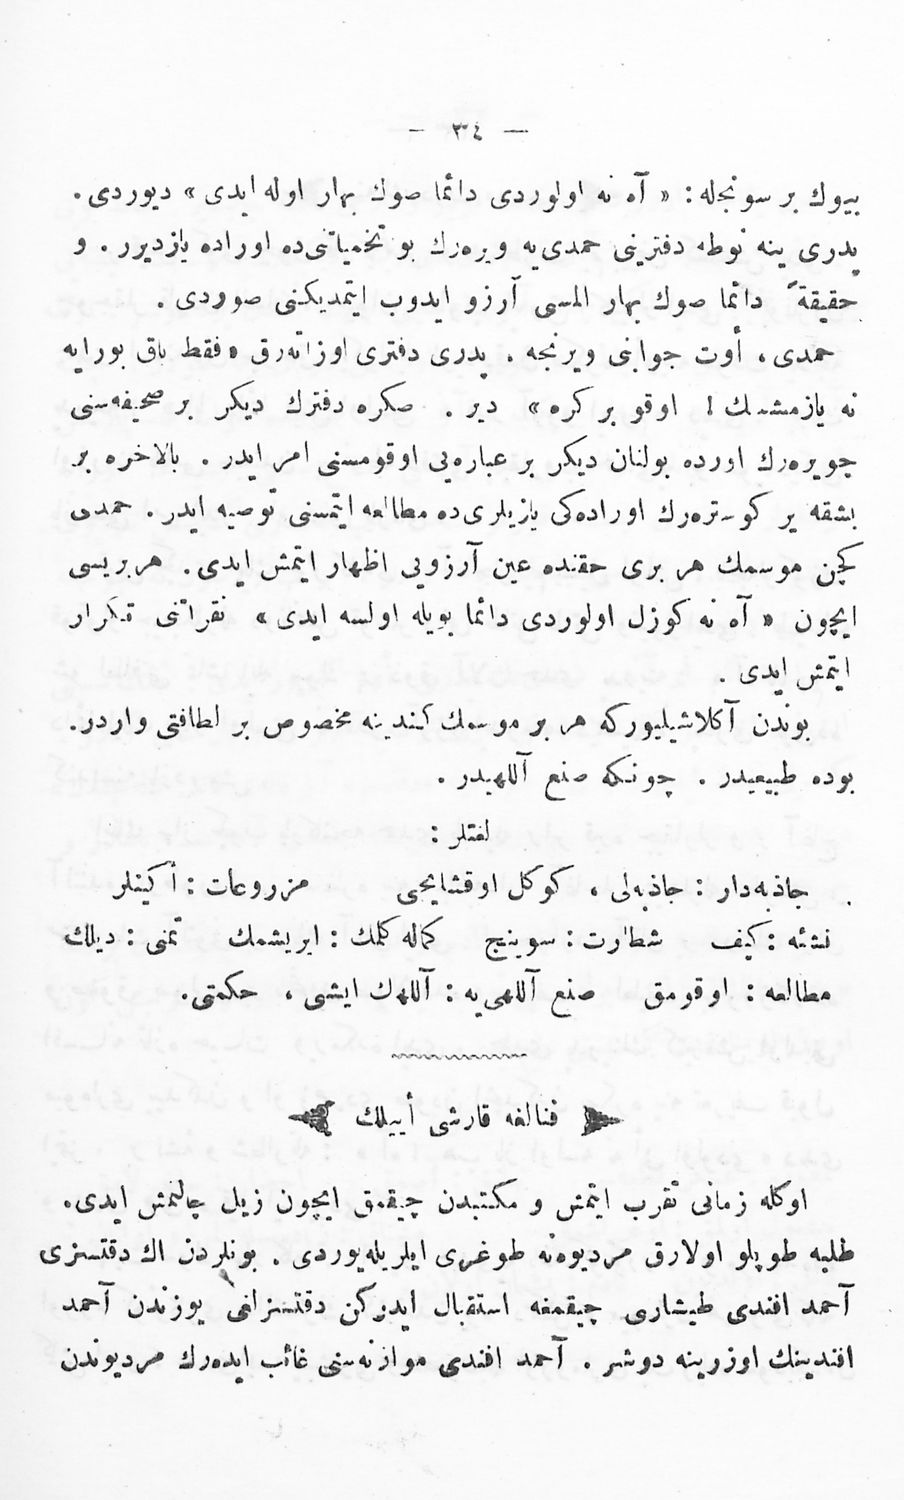 — ٣٤ —
بیوك بر سونجله : « آه نه اولوردی دائما صوك بهار اوله ایدی » دیوردی .
پدری ینه نوطه دفترینی حمدی‌یه ویره‌رك بو تخمیاتنی‌ده اوراده یازدیرر . و
حقیقةً دائما صوك بهار المسی آرزو ایدوب ایتمدیكنی صوردی .
حمدی ، أوت جوابنی ویرنجه . پدری دفتری اوزاته‌رق « فقط باق بورایه
نه یازمشسك ! اوقو بر كره » دیر . صكره دفترك دیكر بر صحیفه‌سنی
چویره‌رك اورده بولنان دیكر بر عباره‌یی اوقومسنی امر ایدر . بالاخره بر
بشقه یر كوستره‌رك اوراده‌كی یازیلری‌ده مطالعه ایتمسنی توصیه ایدر . حمدی
كچن موسمك هر بری حقنده عین آرزویی اظهار ایتمش ایدی . هربریسی
ایچون « آه نه كوزل اولوردی دائما بویله اولسه ایدی » نقراتنی تكرار
ایتمش ایدی .
بوندن آكلاشیلیوركه هر بر موسمك كندینه مخصوص بر لطافتی واردر .
بوده طبیعیدر . چونكه صنع آللهیدر .
لغتلر :
جاذبه‌دار : جاذبه‌لی ، كوكل اوقشایجی مزروعات : أكینلر
نشئه : كیف شطارت : سوینج كماله كلمك : ایریشمك تمنی : دیلك
مطالعه : اوقومق صنع آللهی‌یه : آللهك ایشی ، حكمتی .
فنالغه قارشی أییلك
اوكله زمانی تقرب ایتمش و مكتبدن چیقمق ایچون زیل چالنمش ایدی .
طلبه طوپلو اولارق مردیوه‌نه طوغری ایلریله‌یوردی . بونلردن اك دقتسزی
آحمد افندی طیشاری چیقمغه استقبال ایدركن دقتسزلغی یوزندن آحمد
افندینك اوزرینه دوشر . آحمد افندی موازنه‌سنی غائب ایده‌رك مردیوندن